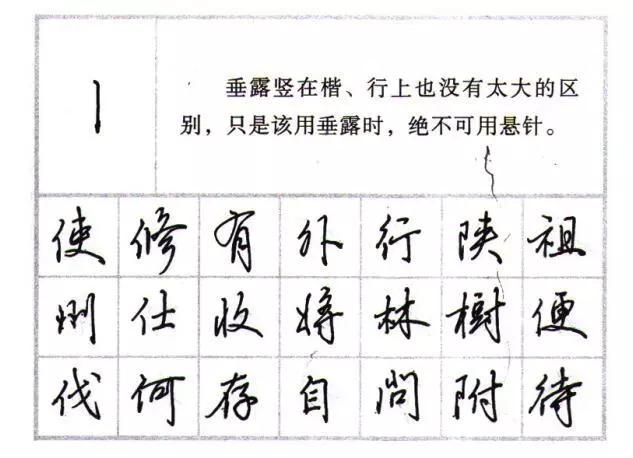 垂露竖在楷、行上也没有太大的区
别，只是该用垂露时，绝不可用悬针。
使 修 有 外 行 陕 祖
州 仕 收 将 林 树 便
伐 何 存 自 问 附 待